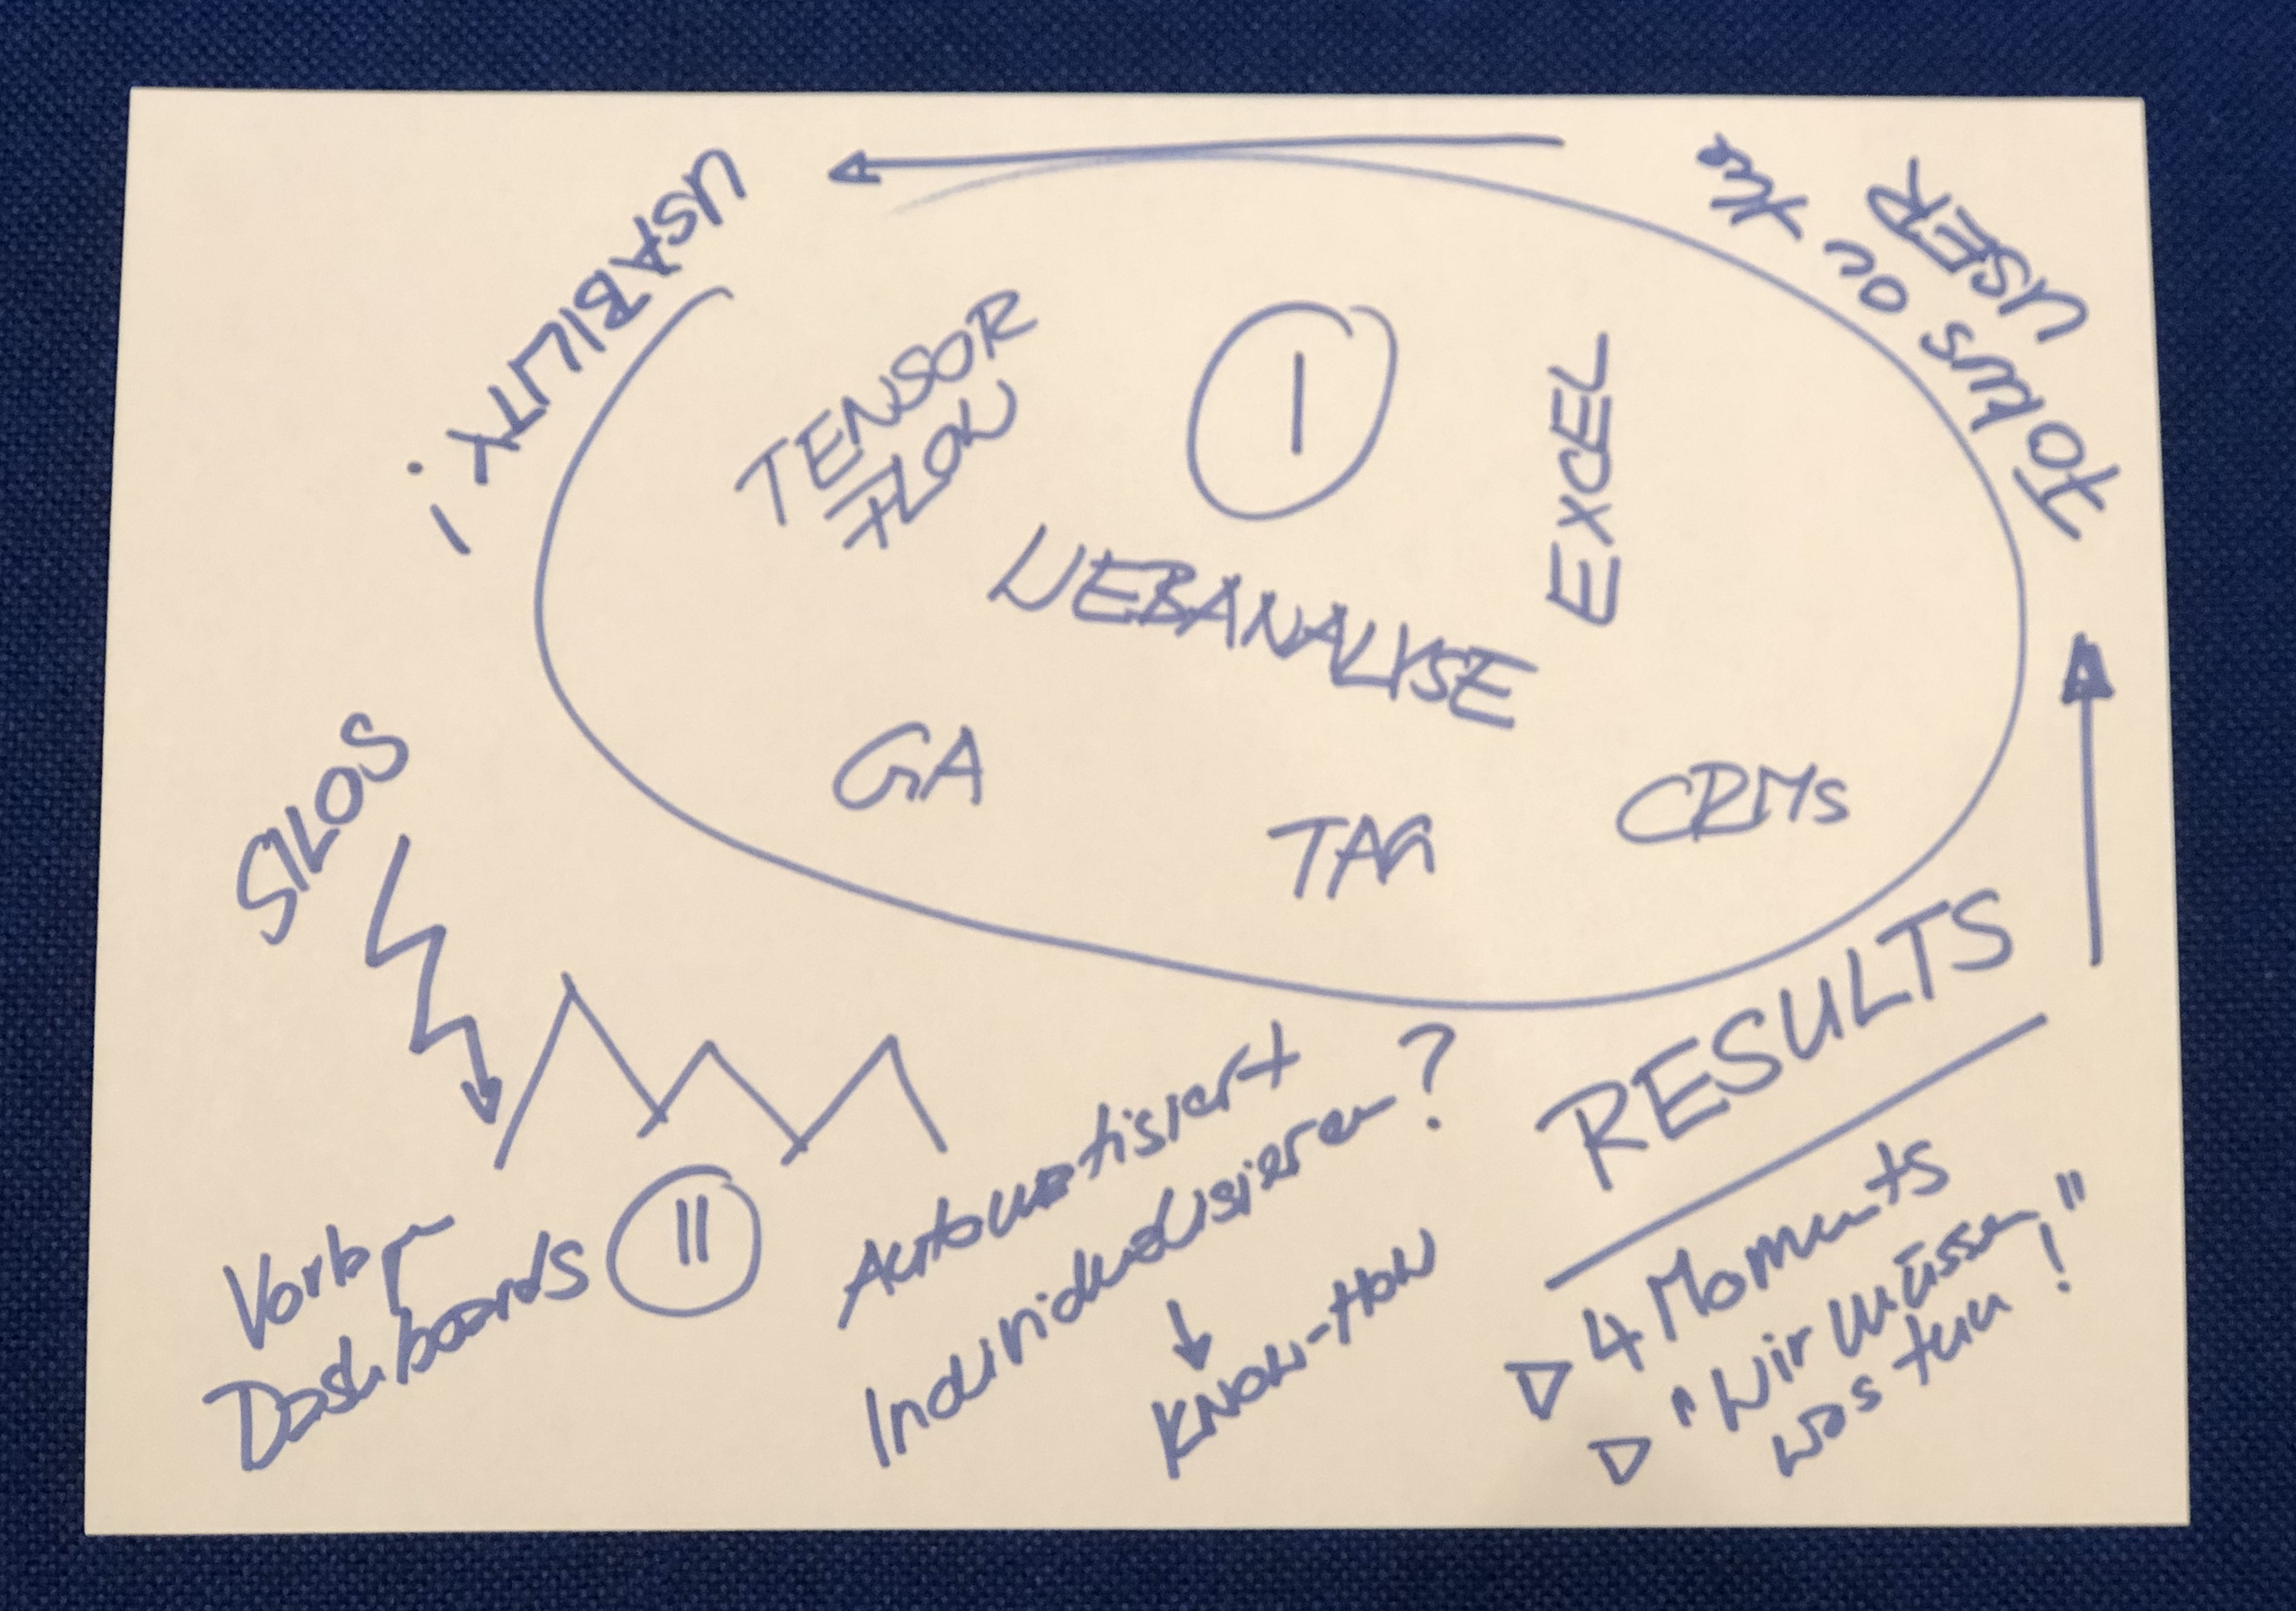 USABILITY!
Fokus on the
USER
TENSOR
FLOW
I
EXCEL
WEBANALYSE
GA
TAG
CRMs
SILOS
RESULTS
▽ 4 Moments
▽ "Wir müssen
was tun!"
Automatisiert
Individualisieren?
↓
KNOW-HOW
II
Dashboards